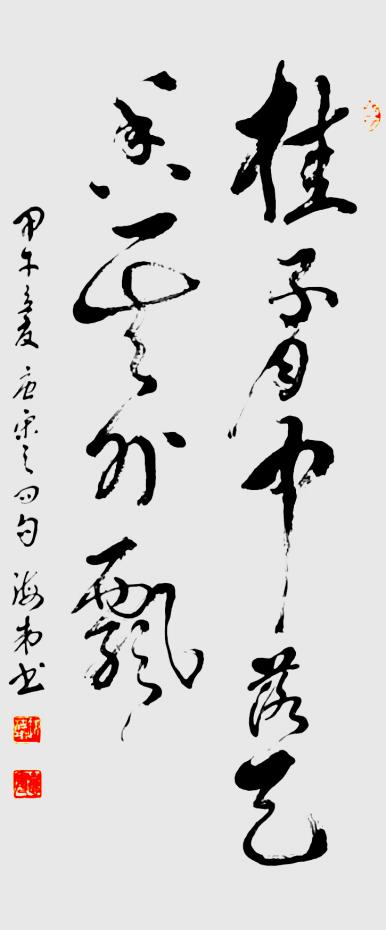 桂子月中落天
香雲外飄
甲午夏唐宋之问句海书